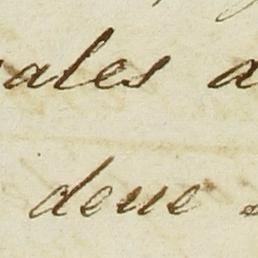 ales a
deue